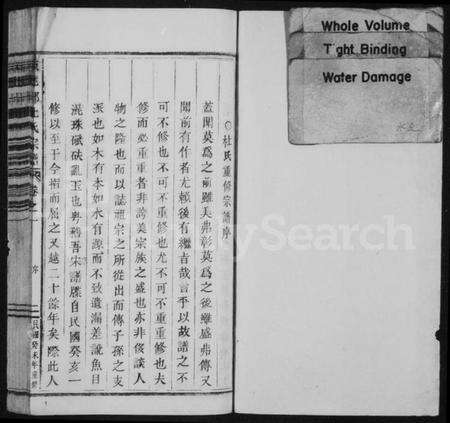 Whole Volume
Tight Binding
Water Damage
MySearch
○杜氏重修宗譜序
蓋聞莫為之前雖美弗彰莫為之後雖盛弗傳又
聞前有作者尤賴後有繼者哉言乎以故譜之不
可不修也不可不重修也尤不可不重重修也夫
修而必重重者非誇美宗族之盛也亦非侈談人
物之隆也而以誌祖宗之所從出而傳子孫之支
派也如木有本如水有源而不致遺漏差訛魚目
混珠碔砆亂玉也粵稽吾宋譜牒自民國癸亥一
修以至于今指而屈之又越二十餘年矣際此人
杜氏宗譜 卷之一 序 二 民國癸未年重修